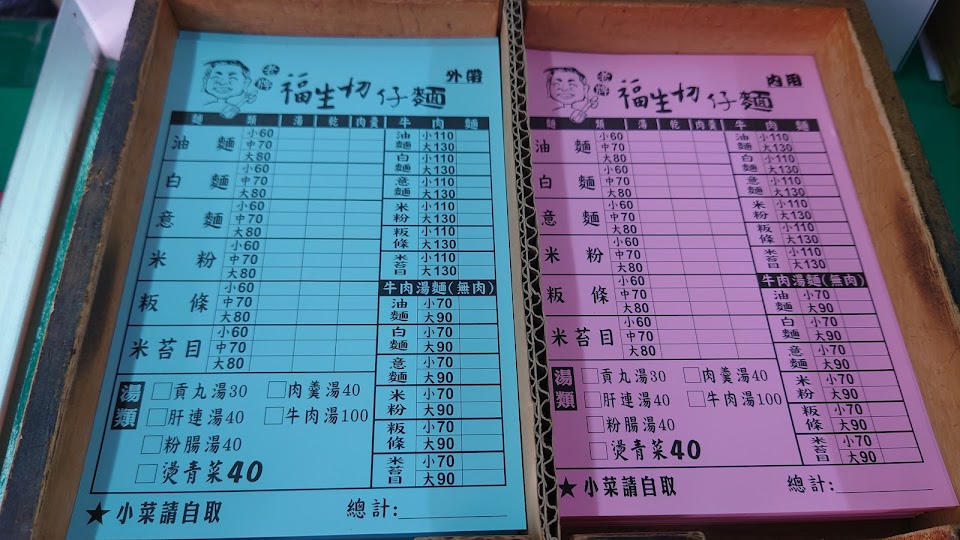 老牌 福生切仔麵 外帶
麵 類 湯 乾 肉羹 牛 肉 麵
油 麵 小60 中70 大80
白 麵 小60 中70 大80
意 麵 小60 中70 大80
米 粉 小60 中70 大80
粄 條 小60 中70 大80
米苔目 小60 中70 大80
油麵 小110 大130
白麵 小110 大130
意麵 小110 大130
米粉 小110 大130
粄條 小110 大130
米苔目 小110 大130
牛肉湯麵(無肉)
油麵 小70 大90
白麵 小70 大90
意麵 小70 大90
米粉 小70 大90
粄條 小70 大90
米苔目 小70 大90
湯類
□貢丸湯30 □肉羹湯40
□肝連湯40 □牛肉湯100
□粉腸湯40
□燙青菜40
★小菜請自取 總計:
老牌 福生切仔麵 內用
麵 類 湯 乾 肉羹 牛 肉 麵
油 麵 小60 中70 大80
白 麵 小60 中70 大80
意 麵 小60 中70 大80
米 粉 小60 中70 大80
粄 條 小60 中70 大80
米苔目 小60 中70 大80
油麵 小110 大130
白麵 小110 大130
意麵 小110 大130
米粉 小110 大130
粄條 小110 大130
米苔目 小110 大130
牛肉湯麵(無肉)
油麵 小70 大90
白麵 小70 大90
意麵 小70 大90
米粉 小70 大90
粄條 小70 大90
米苔目 小70 大90
湯類
□貢丸湯30 □肉羹湯40
□肝連湯40 □牛肉湯100
□粉腸湯40
□燙青菜40
★小菜請自取 總計: